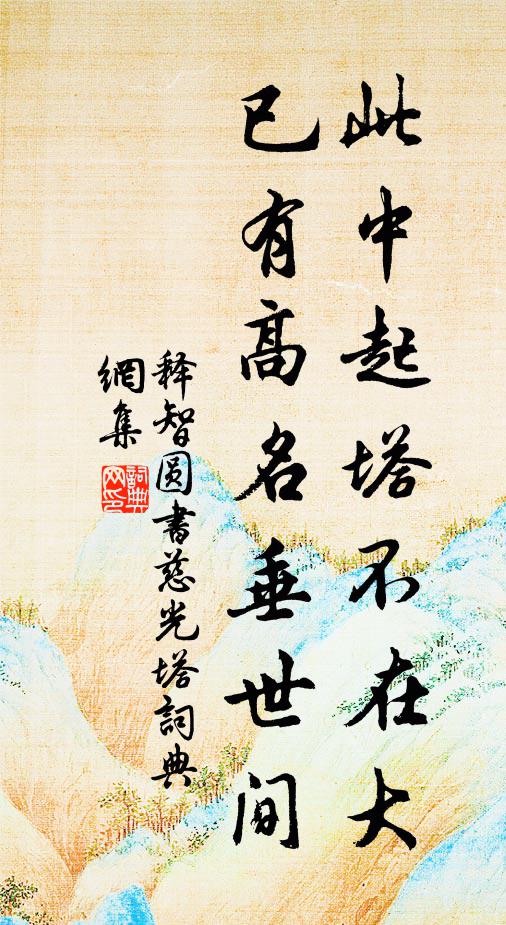 此中起塔不在大
已有高名垂世间
释智圆书慈光塔词典
網集
詞典网印